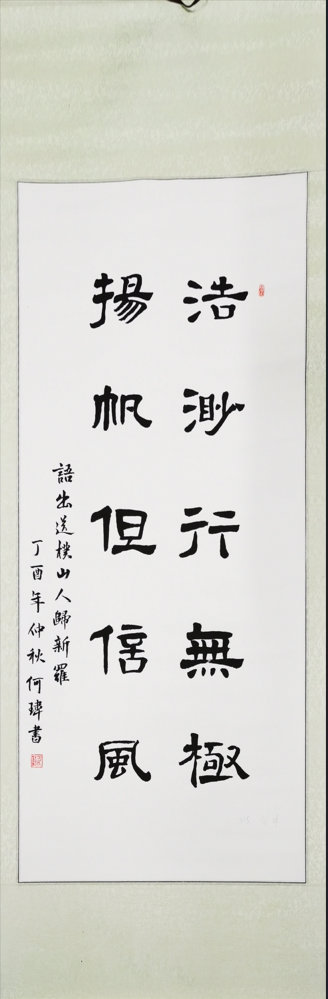 浩渺行無極
揚帆但信風
語出送樸山人歸新羅
丁酉年仲秋何瑋書